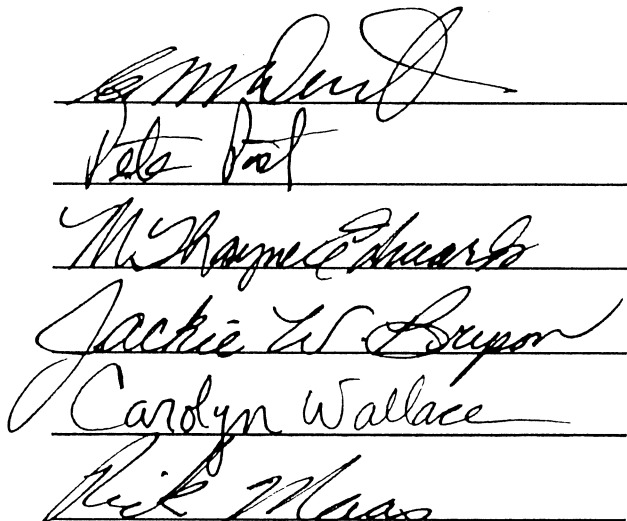 Pete Post
M. Thayne Edwards
Jackie W.
Carolyn Wallace
Rick Maas